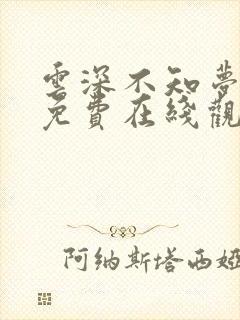 雲深不知夢
免費在綫觀
阿纳斯塔西娅